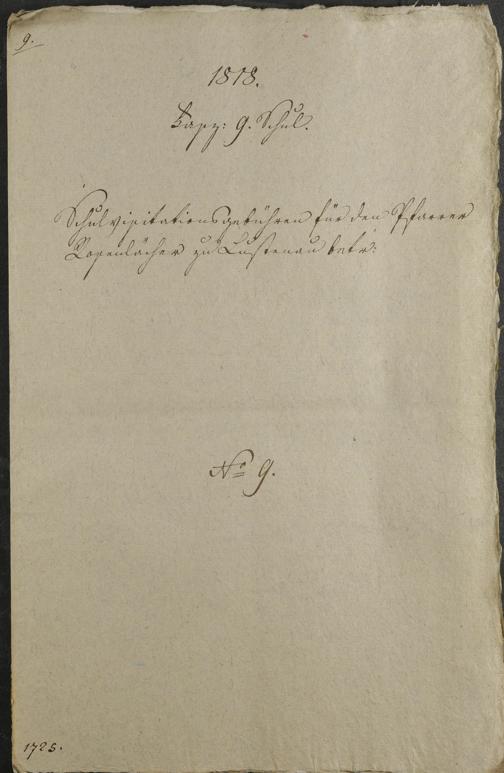 9.
1818.
Fasz: 9. Schul.
Schulvisitationsgebühren für den Pfarrer
Rosenlächer zu Lustenau betr:
No 9.
1725.